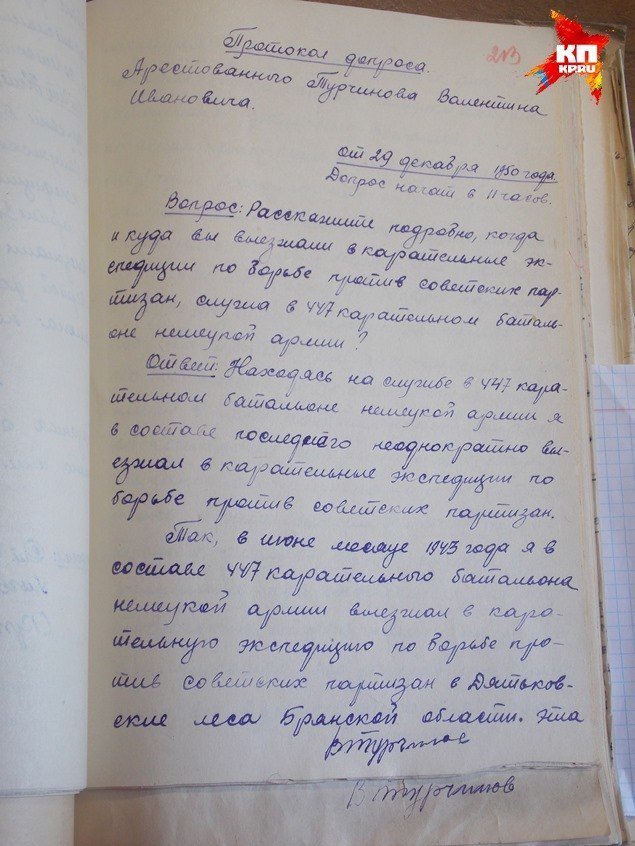 Протокол допроса.
213
КП
KP.RU
Арестованного Турчинова Валентина
Ивановича.
от 29 декабря 1950 года.
Допрос начат в 11 часов.
Вопрос: Расскажите подробно, когда
и куда вы выезжали в карательные эк-
спедиции по борьбе против советских пар-
тизан, служа в 447 карательном баталь-
оне немецкой армии?
Ответ: Находясь на службе в 447 кара-
тельном батальоне немецкой армии я
в составе последнего неоднократно вы-
езжал в карательные экспедиции по
борьбе против советских партизан.
Так, в июне месяце 1943 года я в
составе 447 карательного батальона
немецкой армии выезжал в кара-
тельную экспедицию по борьбе про-
тив советских партизан в Дятьков-
ские леса Брянской области. Эта
ВТурчинов
В Турчинов